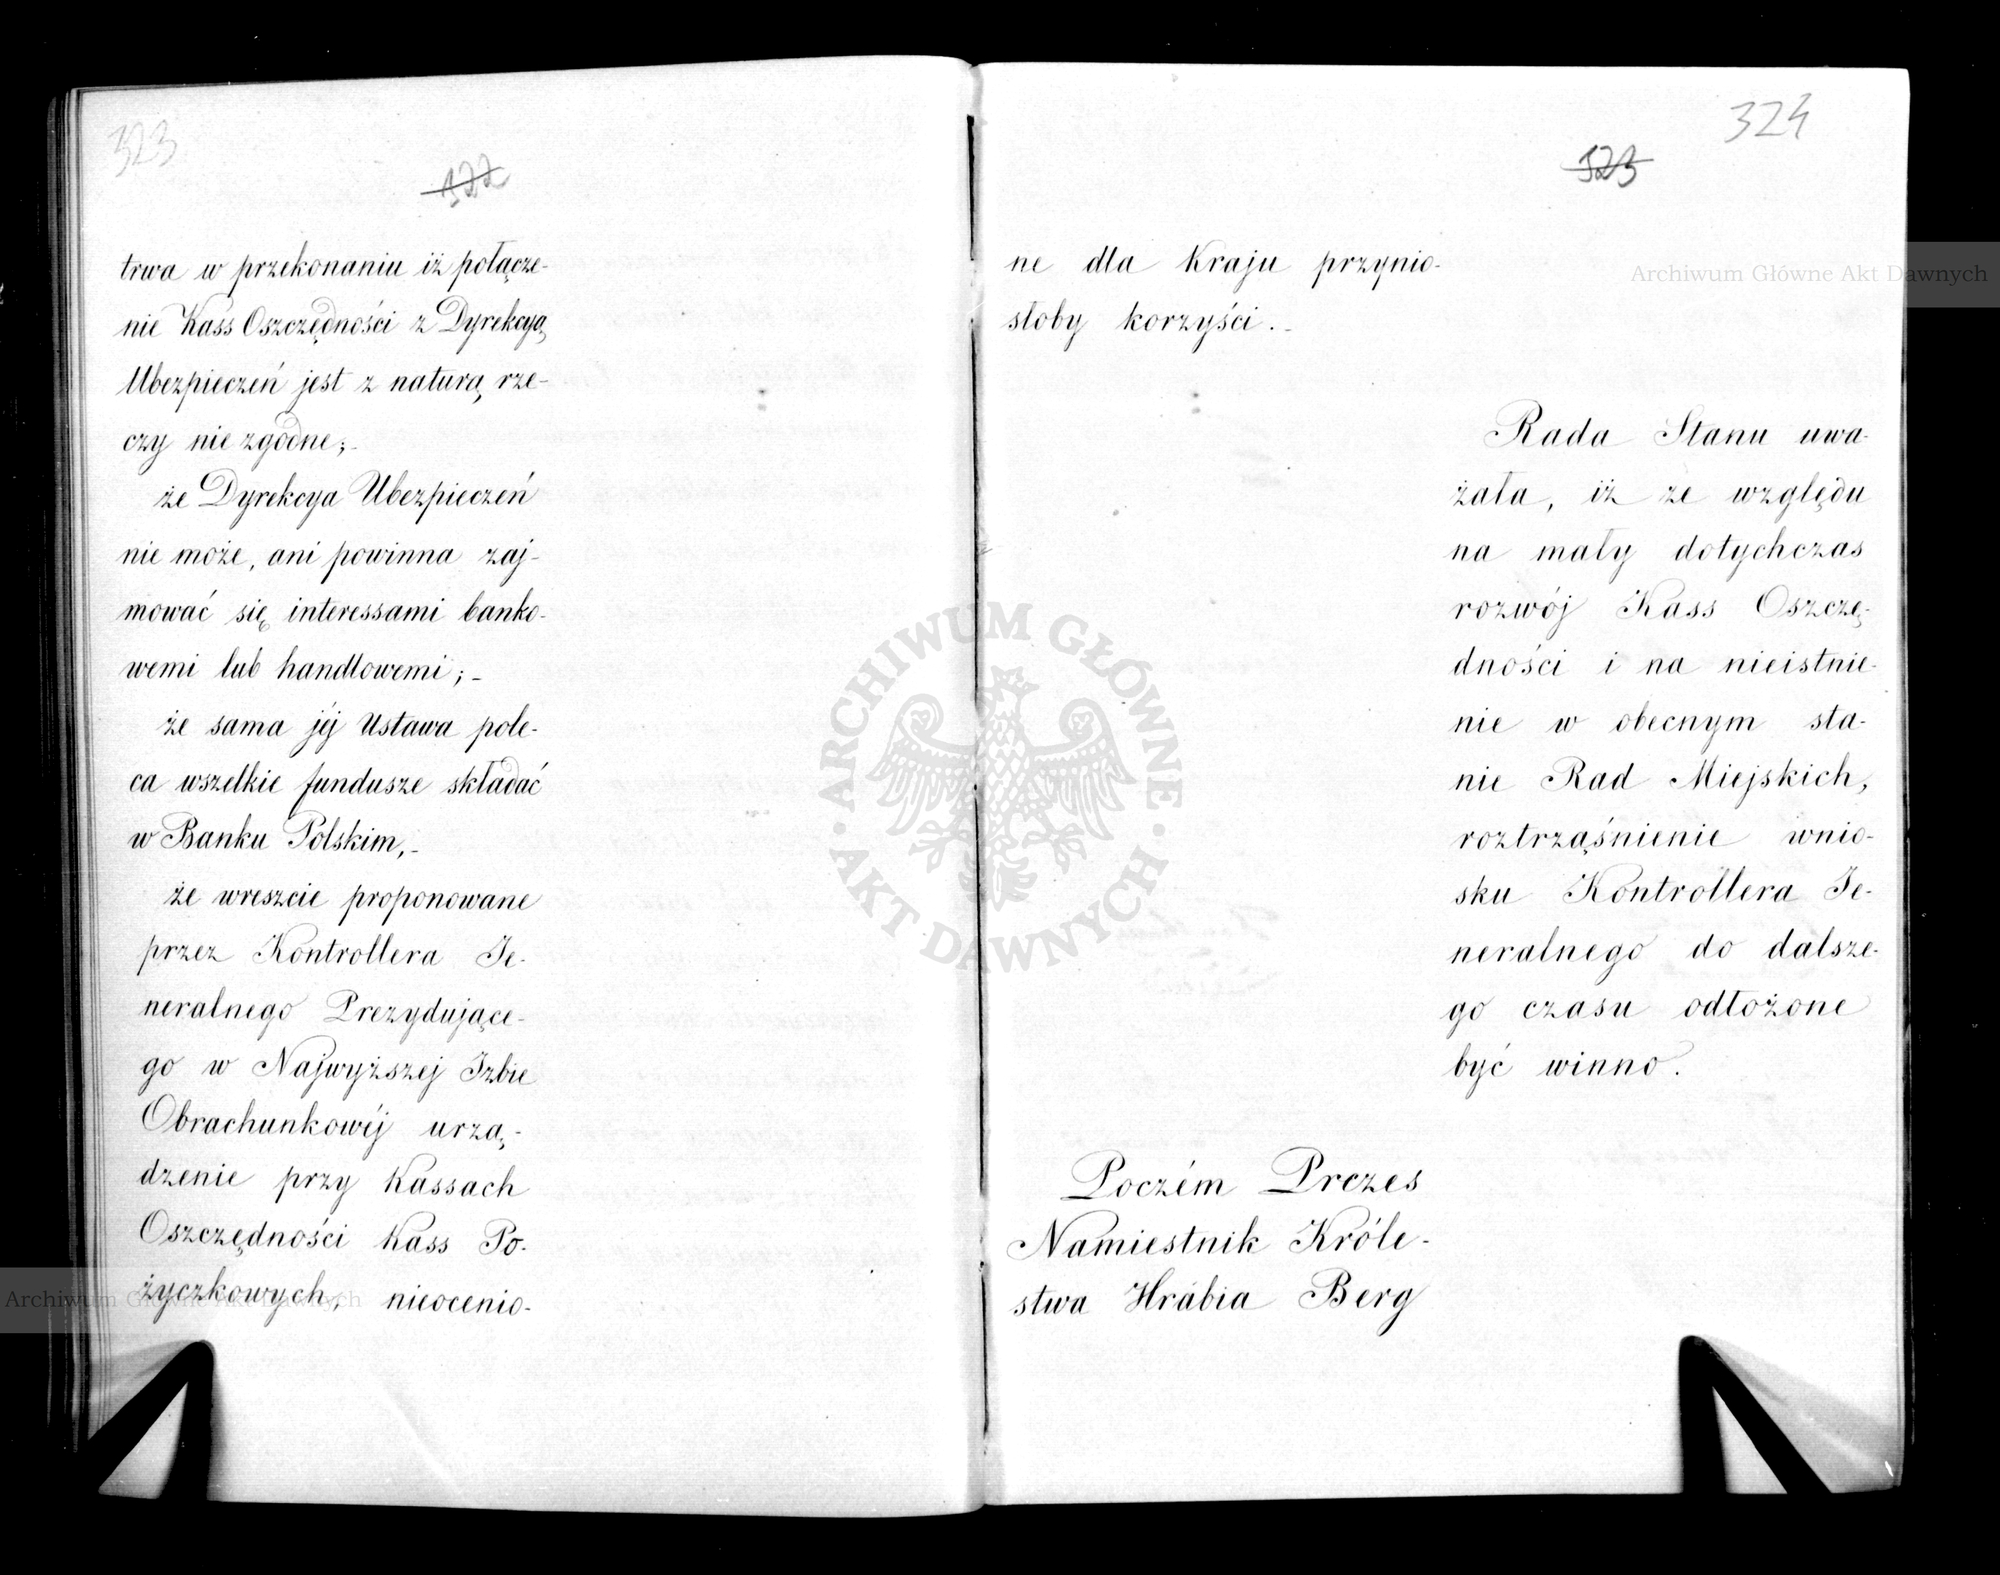 323
322
trwa w przekonaniu iż połącze-
nie Kass Oszczędności z Dyrekcyą
Ubezpieczeń jest z naturą rze-
czy niezgodne;-
że Dyrekcya Ubezpieczeń
nie może, ani powinna zaj-
mować się interessami banko-
wemi lub handlowemi;-
że sama jéj Ustawa pole-
ca wszelkie fundusze składać
w Banku Polskim,-
że wreszcie proponowane
przez Kontrollera Je-
neralnego Prezydujące-
go w Najwyższej Izbie
Obrachunkowéj urzą-
dzenie przy Kassach
Oszczędności Kass Po-
życzkowych, nieocenio-
324
323
ne dla Kraju przynio-
słoby korzyści.-
Rada Stanu uwa-
żała, iż ze względu
na mały dotychczas
rozwój Kass Oszczę-
dności i na nieistnie-
nie w obecnym sta-
nie Rad Miejskich,
roztrząśnienie wnio-
sku Kontrollera Je-
neralnego do dalsze-
go czasu odłożone
być winno.
Poczém Prezes
Namiestnik Króle-
stwa Hrabia Berg
Archiwum Główne Akt Dawnych
ARCHIWUM GŁÓWNE
AKT DAWNYCH
Archiwum Główne Akt Dawnych